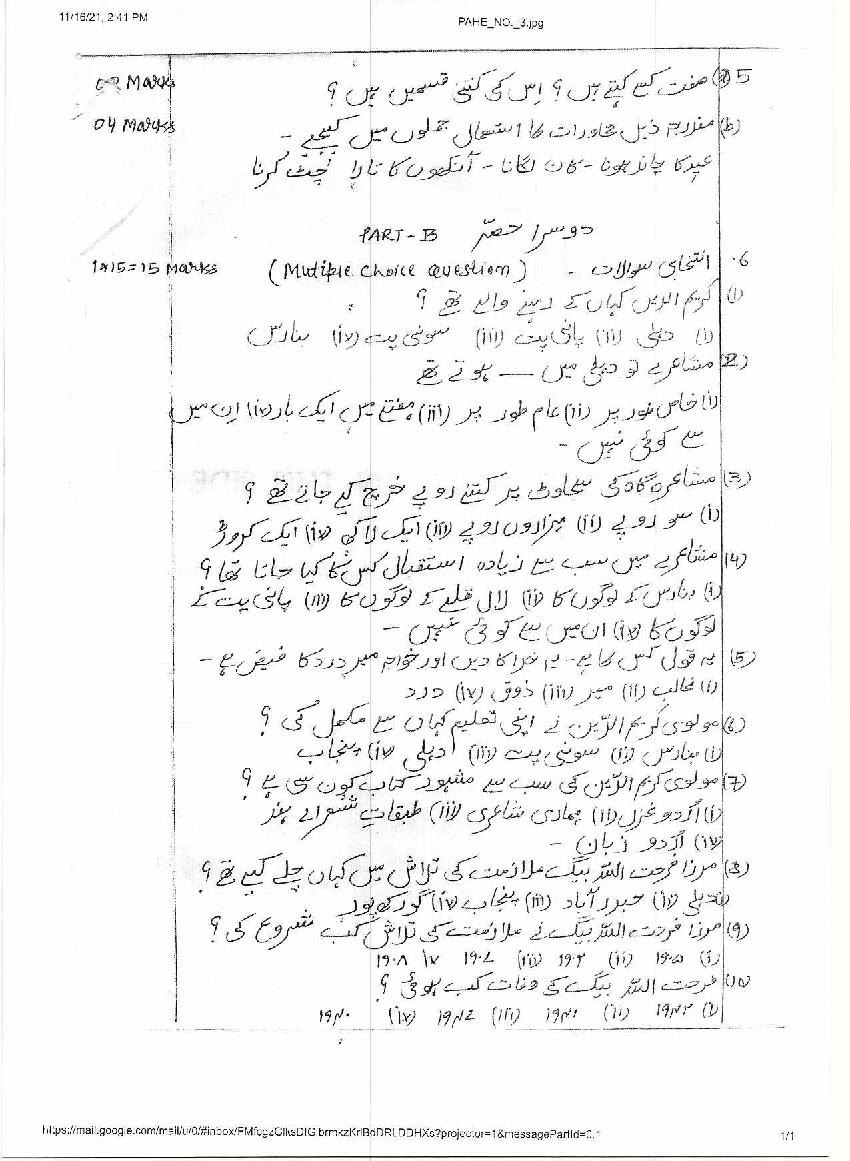 11/16/21, 2:41 PM
PAHE_NO._3.jpg
5 (a) صفت کسے کہتے ہیں؟ اِس کی کتنی قسمیں ہیں؟
Marks
(b) مندرجہ ذیل محاورات کا استعمال جملوں میں کیجیے -
04 Marks
عید کا چاند ہونا - کان لگانا - آنکھوں کا تارا چٹ کرنا
PART-B دوسرا حصّہ
6. انتخابی سوالات - (Mutiple choice question)
1×15=15 Marks
(i) کریم الدین کہاں کے رہنے والے تھے؟
(i) دہلی (ii) پانی پت (iii) سونی پت (iv) بنارس
(2) مشاعرے تو دہلی میں —— ہوتے تھے
(i) خاص طور پر (ii) عام طور پر (iii) ہفتے میں ایک بار (iv) اِن میں
سے کوئی نہیں -
(3) مشاعرہ گاہ کی سجاوٹ پر کتنے روپے خرچ کیے جاتے تھے؟
(i) سو روپے (ii) ہزاروں روپے (iii) ایک لاکھ (iv) ایک کروڑ
(4) مشاعرے میں سب سے زیادہ استقبال کس کا کیا جاتا تھا؟
(i) بنارس کے لوگوں کا (ii) لال قلعے کے لوگوں کا (iii) پانی پت کے
لوگوں کا (iv) ان میں سے کوئی نہیں -
(5) یہ قول کس کا ہے - یہ خدا کا دین اور خواجہ میر درد کا فیض ہے -
(i) غالب (ii) میر (iii) ذوق (iv) درد
(6) مولوی کریم الدّین نے اپنی تعلیم کہاں سے مکمل کی؟
(i) بنارس (ii) سونی پت (iii) دہلی (iv) پنجاب
(7) مولوی کریم الدّین کی سب سے مشہور کتاب کون سی ہے؟
(i) اُردو غزل (ii) ہماری شاعری (iii) طبقاتِ شعرائے ہند
(iv) اُردو زبان -
(8) مرزا فرحت اللہ بیگ ملازمت کی تلاش میں کہاں چلے گیے تھے؟
دہلی (ii) حیدرآباد (iii) پنجاب (iv) گورکھپور
(9) مرزا فرحت اللہ بیگ نے ملازمت کی تلاش کب شروع کی؟
(i) ۱۹۰۵ (ii) ۱۹۰۲ (iii) ۱۹۰۷ iv ۱۹۰۸
(10) فرحت اللہ بیگ کی وفات کب ہوئی؟
(i) ۱۹۴۲ (ii) ۱۹۴۱ (iii) ۱۹۴۷ (iv) ۱۹۴۰
1/1